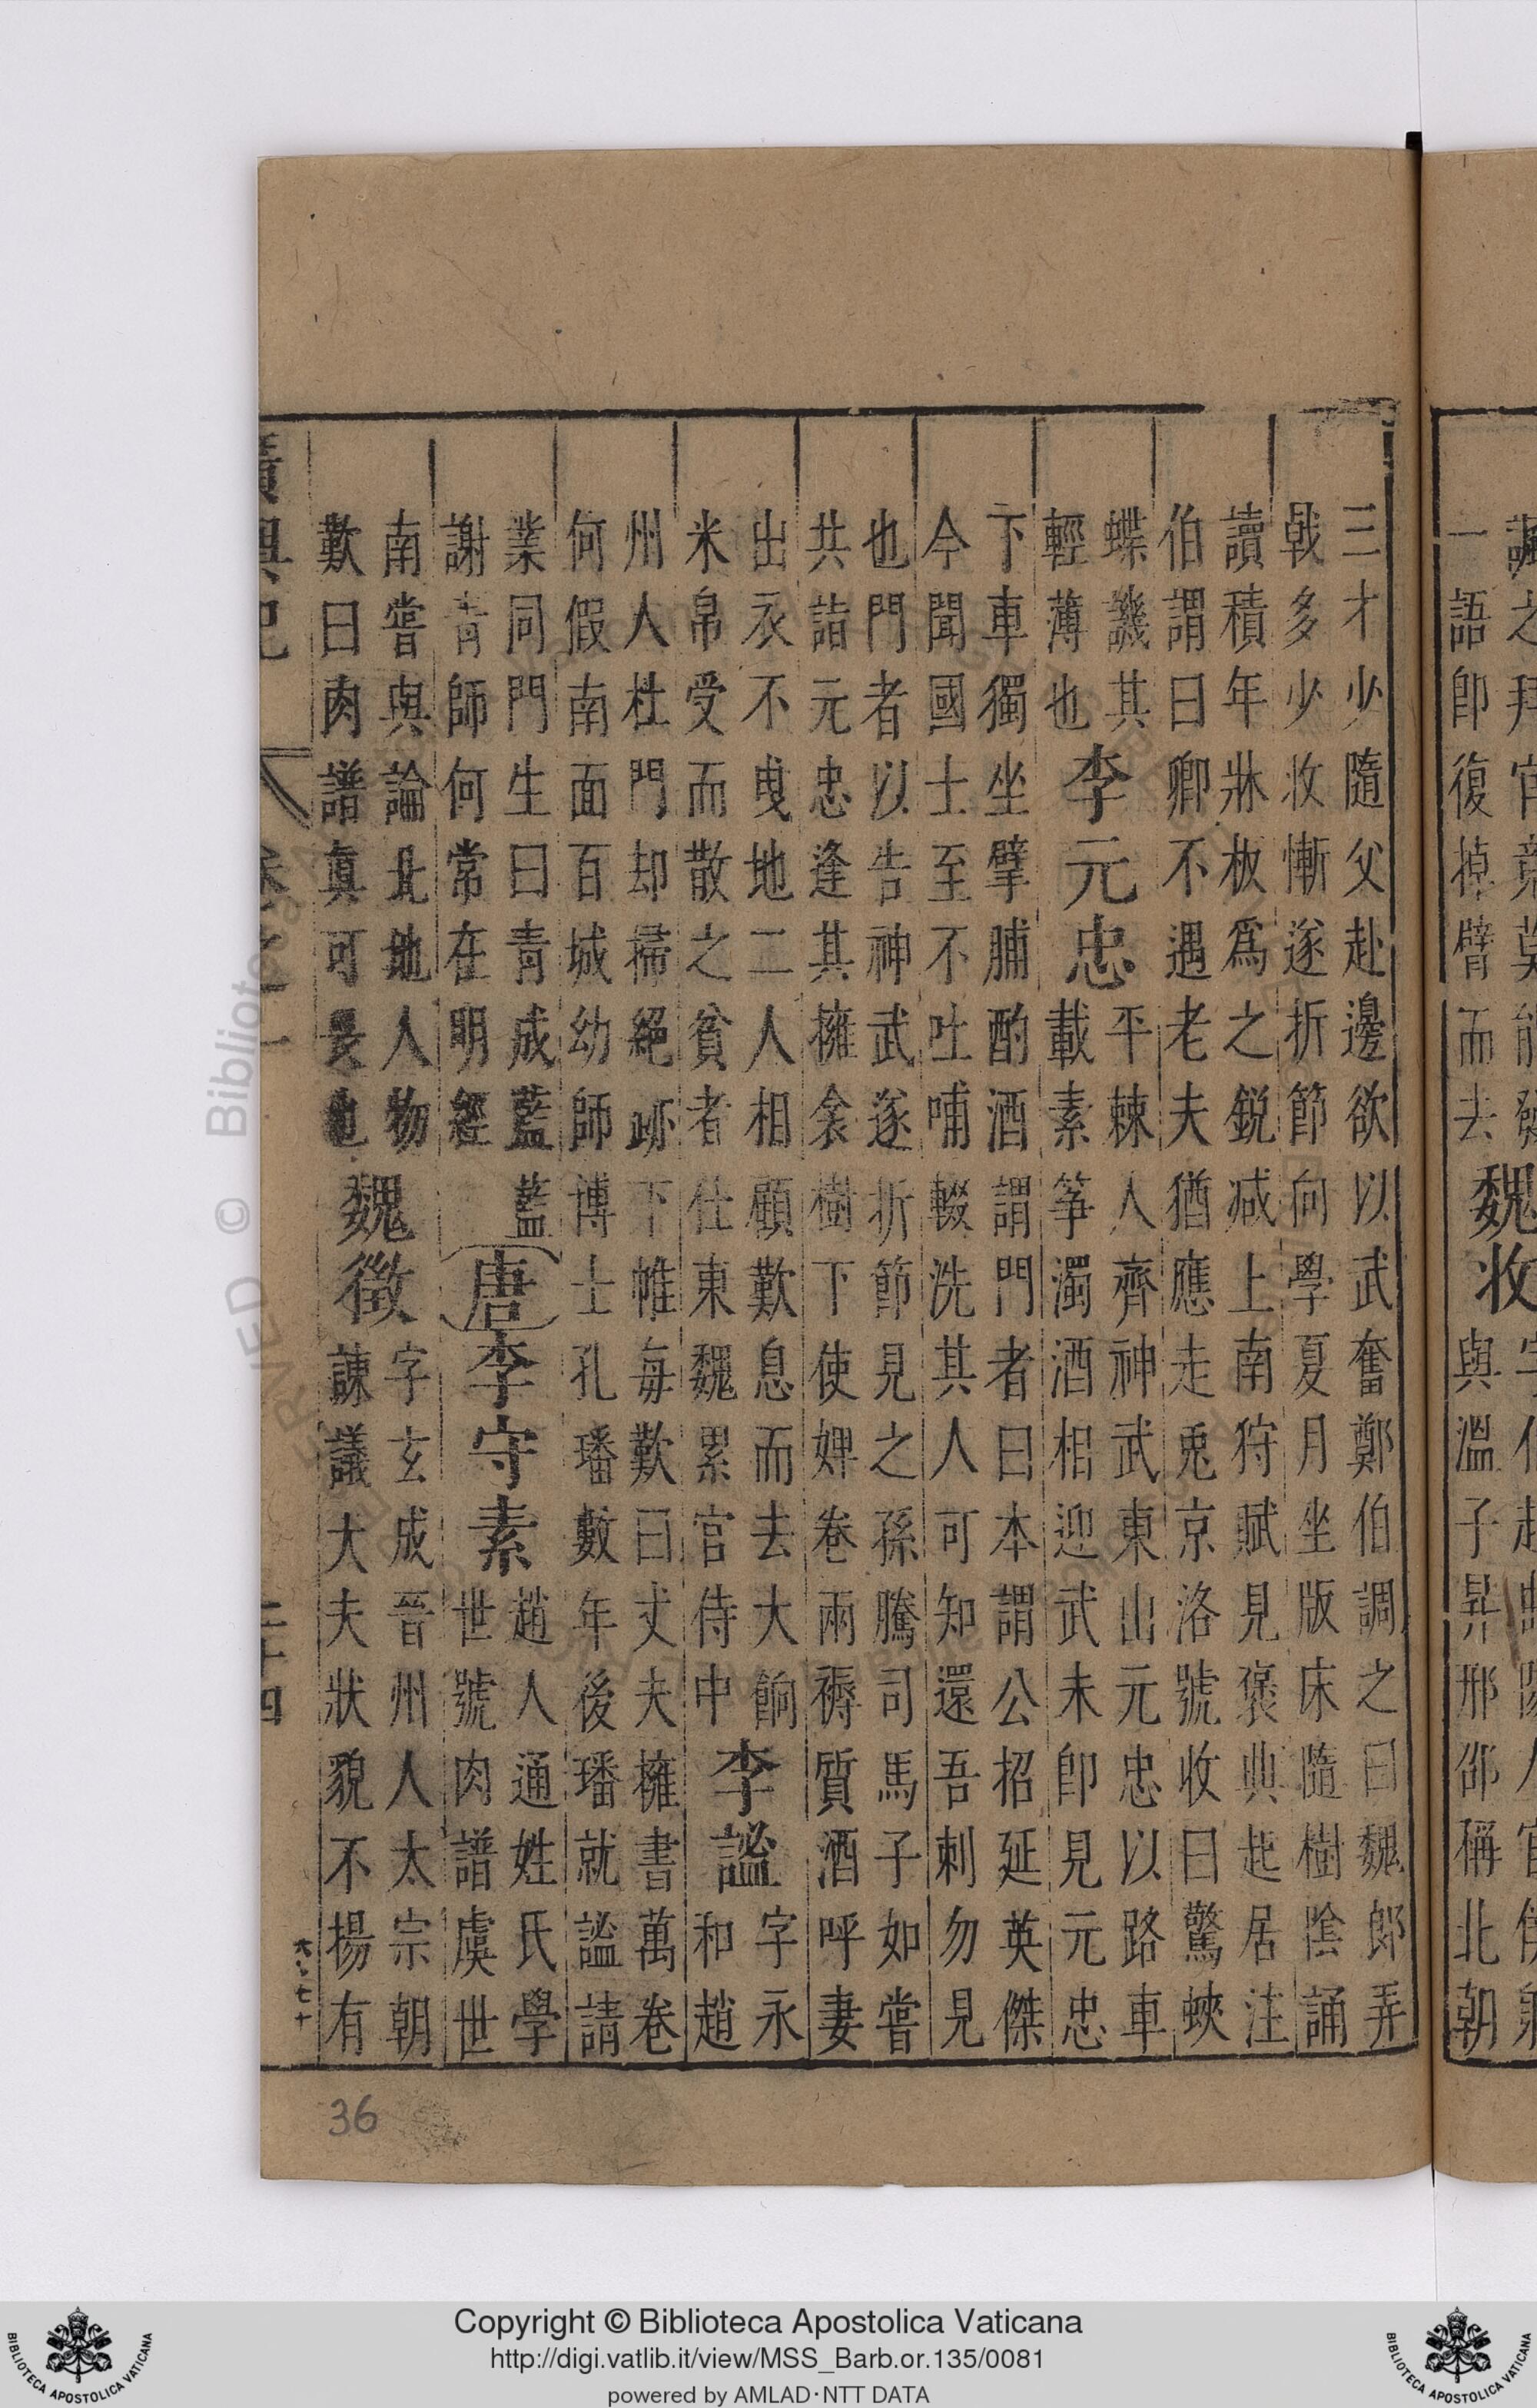 一語即復掉臂而去
魏收
與溫子昇邢邵稱北朝
三才少隨父赴邊欲以武奮鄭伯調之曰魏郎弄
戟多少收慚遂折節向學夏月坐版床隨樹陰誦
讀積年牀板爲之銳减上南狩賦見褒典起居注
伯謂曰卿不遇老夫猶應走兎京洛號收曰驚蛺
蝶譏其
輕薄也
李元忠
平棘人齊神武東山元忠以路車
載素筝濁酒相迎武未即見元忠
下車獨坐擘脯酌酒謂門者曰本謂公招延英傑
今聞國士至不吐哺輟洗其人可知還吾刺勿見
也門者以告神武遂折節見之孫騰司馬子如嘗
共詣元忠逢其擁衾樹下使婢卷兩褥質酒呼妻
出衣不曳地二人相顧歎息而去大餉
米帛受而散之貧者仕東魏累官侍中
李謐
字永
和趙
州人杜門却掃絕跡下帷每歎曰丈夫擁書萬卷
何假南面百城幼師博士孔璠數年後璠就謐請
業同門生曰青成藍藍
謝青師何常在明經
唐
李守素
趙人通姓氏學
世號肉譜虞世
南嘗與論北地人物
歎曰肉譜真可畏也
魏徵
字玄成晉州人太宗朝
諫議大夫狀貌不揚有
廣輿記 卷之一 二十四
36
Copyright © Biblioteca Apostolica Vaticana
http://digi.vatlib.it/view/MSS_Barb.or.135/0081
powered by AMLAD·NTT DATA
BIBLIOTECA APOSTOLICA VATICANA
BIBLIOTECA APOSTOLICA VATICANA